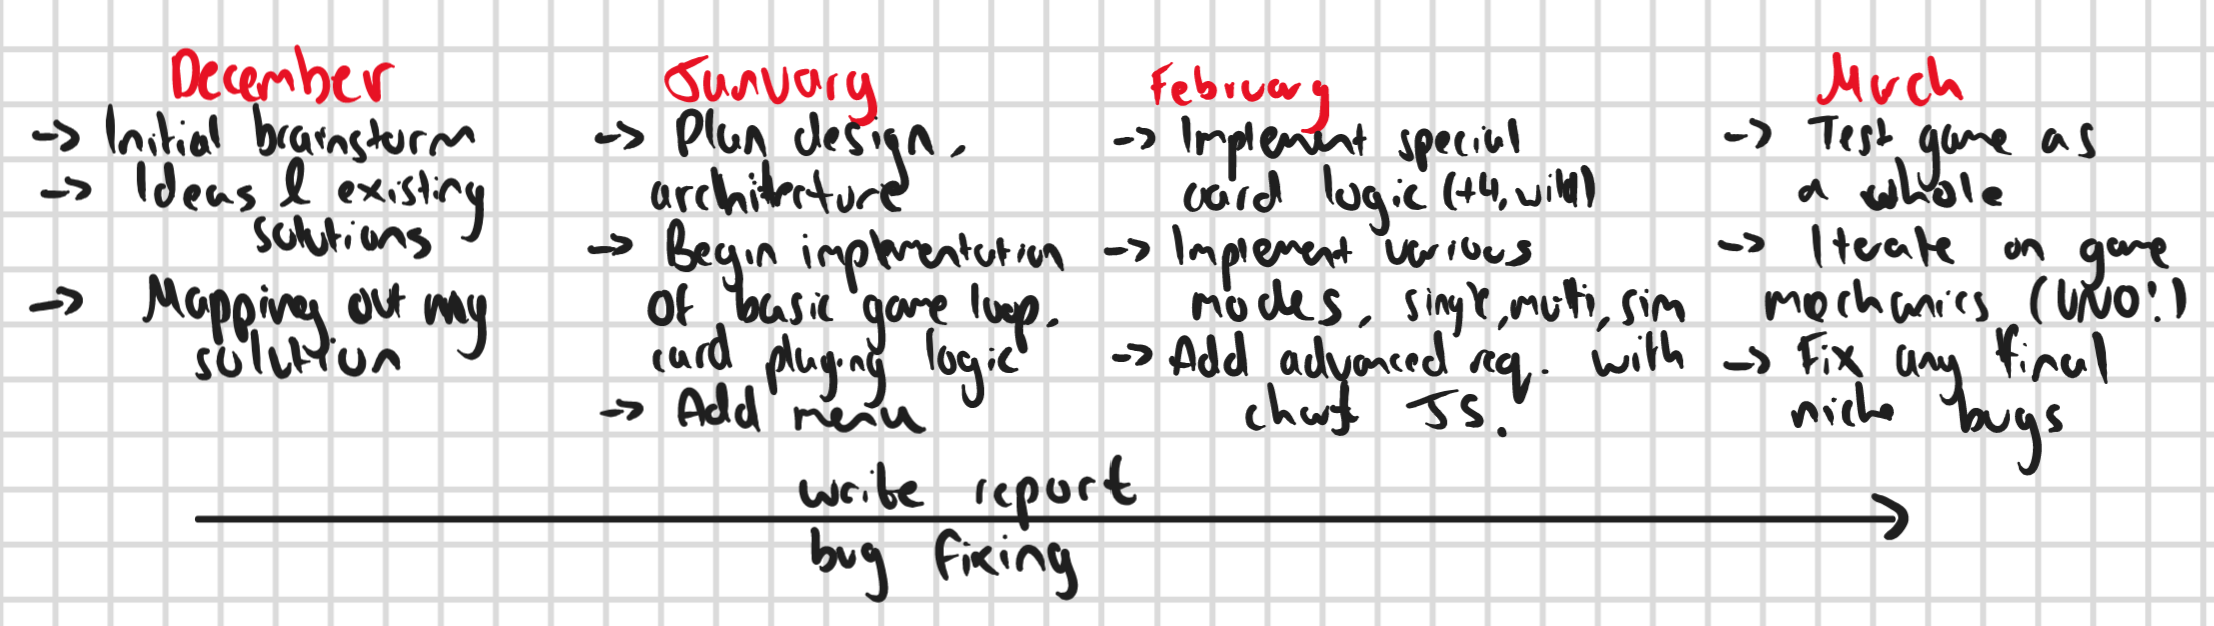 December
→ Initial brainstorm
→ Ideas & existing
solutions
→ Mapping out my
solution
January
→ Plan design,
architecture
→ Begin implementation
of basic game loop,
card playing logic
→ Add menu
February
→ Implement special
card logic (+4, wild)
→ Implement various
modes, single, multi, sim
→ Add advanced req. with
chart JS.
March
→ Test game as
a whole
→ Iterate on game
mechanics (UNO!)
→ Fix any final
niche bugs
write report
bug fixing